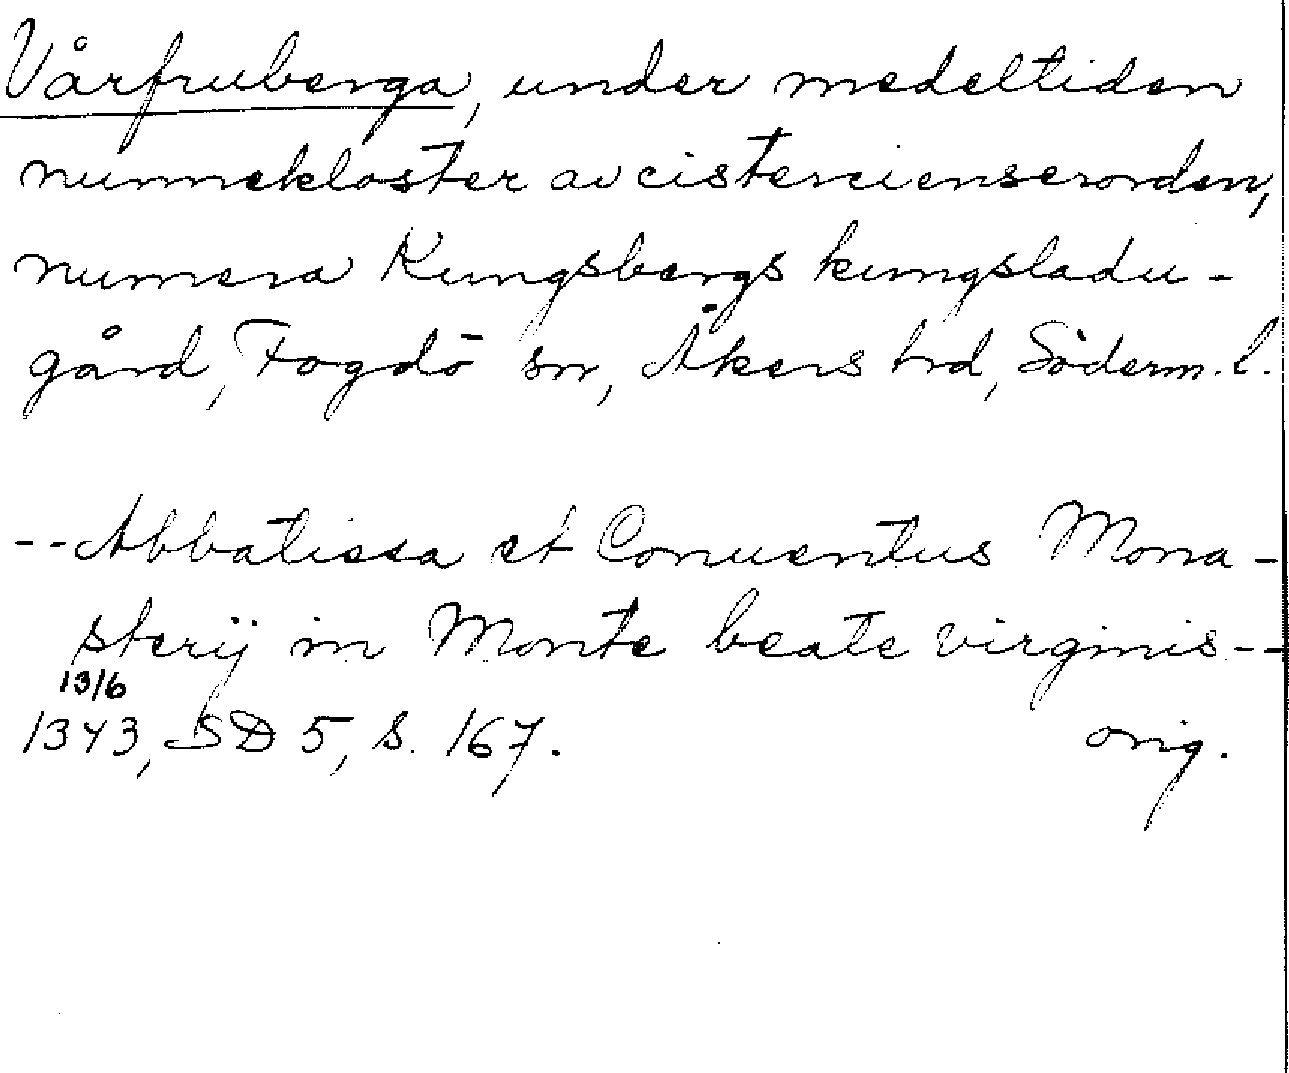 Vårfruberga, under medeltiden
nunnekloster av cistercienserorden,
numera Kungsbergs kungsladu-
gård, Fogdö sn, Åkers hd, Söderm. l.
--Abbatissa et Conuentus Mona-
sterij in Monte beate virginis--
13/6
1343, SD 5, s. 167. orig.